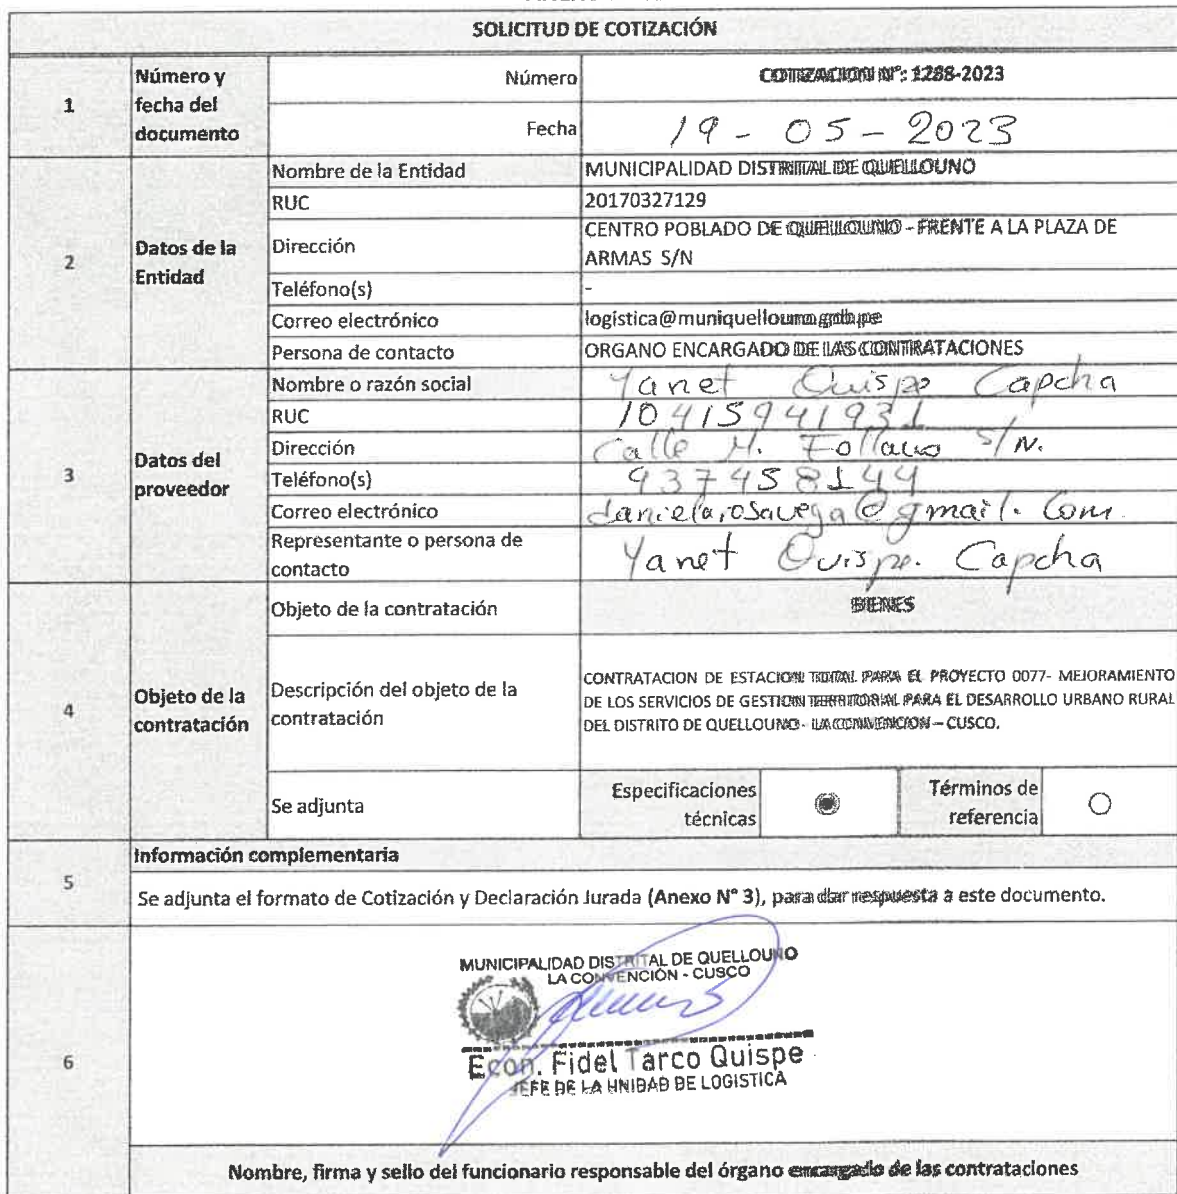 SOLICITUD DE COTIZACIÓN
1
Número y fecha del documento
Número
COTIZACION N°: 1288-2023
Fecha
19 - 05 - 2023
2
Datos de la Entidad
Nombre de la Entidad
MUNICIPALIDAD DISTRITAL DE QUELLOUNO
RUC
20170327129
Dirección
CENTRO POBLADO DE QUELLOUNO - FRENTE A LA PLAZA DE
ARMAS S/N
Teléfono(s)
-
Correo electrónico
logistica@muniquellouno.gob.pe
Persona de contacto
ORGANO ENCARGADO DE LAS CONTRATACIONES
3
Datos del proveedor
Nombre o razón social
Yanet Quispe Capcha
RUC
10415941931
Dirección
Calle H. s/N.
Teléfono(s)
937458144
Correo electrónico
danielarosavega@gmail.com
Representante o persona de
contacto
Yanet Quispe. Capcha
4
Objeto de la contratación
Objeto de la contratación
BIENES
Descripción del objeto de la
contratación
CONTRATACION DE ESTACION TOTAL PARA EL PROYECTO 0077- MEJORAMIENTO
DE LOS SERVICIOS DE GESTION TERRITORIAL PARA EL DESARROLLO URBANO RURAL
DEL DISTRITO DE QUELLOUNO- LA CONVENCION – CUSCO.
Se adjunta
Especificaciones
técnicas
Términos de
referencia
5
Información complementaria
Se adjunta el formato de Cotización y Declaración Jurada (Anexo N° 3), para dar respuesta a este documento.
6
MUNICIPALIDAD DISTRITAL DE QUELLOUNO
LA CONVENCIÓN - CUSCO
Econ. Fidel Tarco Quispe
JEFE DE LA UNIDAD DE LOGISTICA
Nombre, firma y sello del funcionario responsable del órgano encargado de las contrataciones